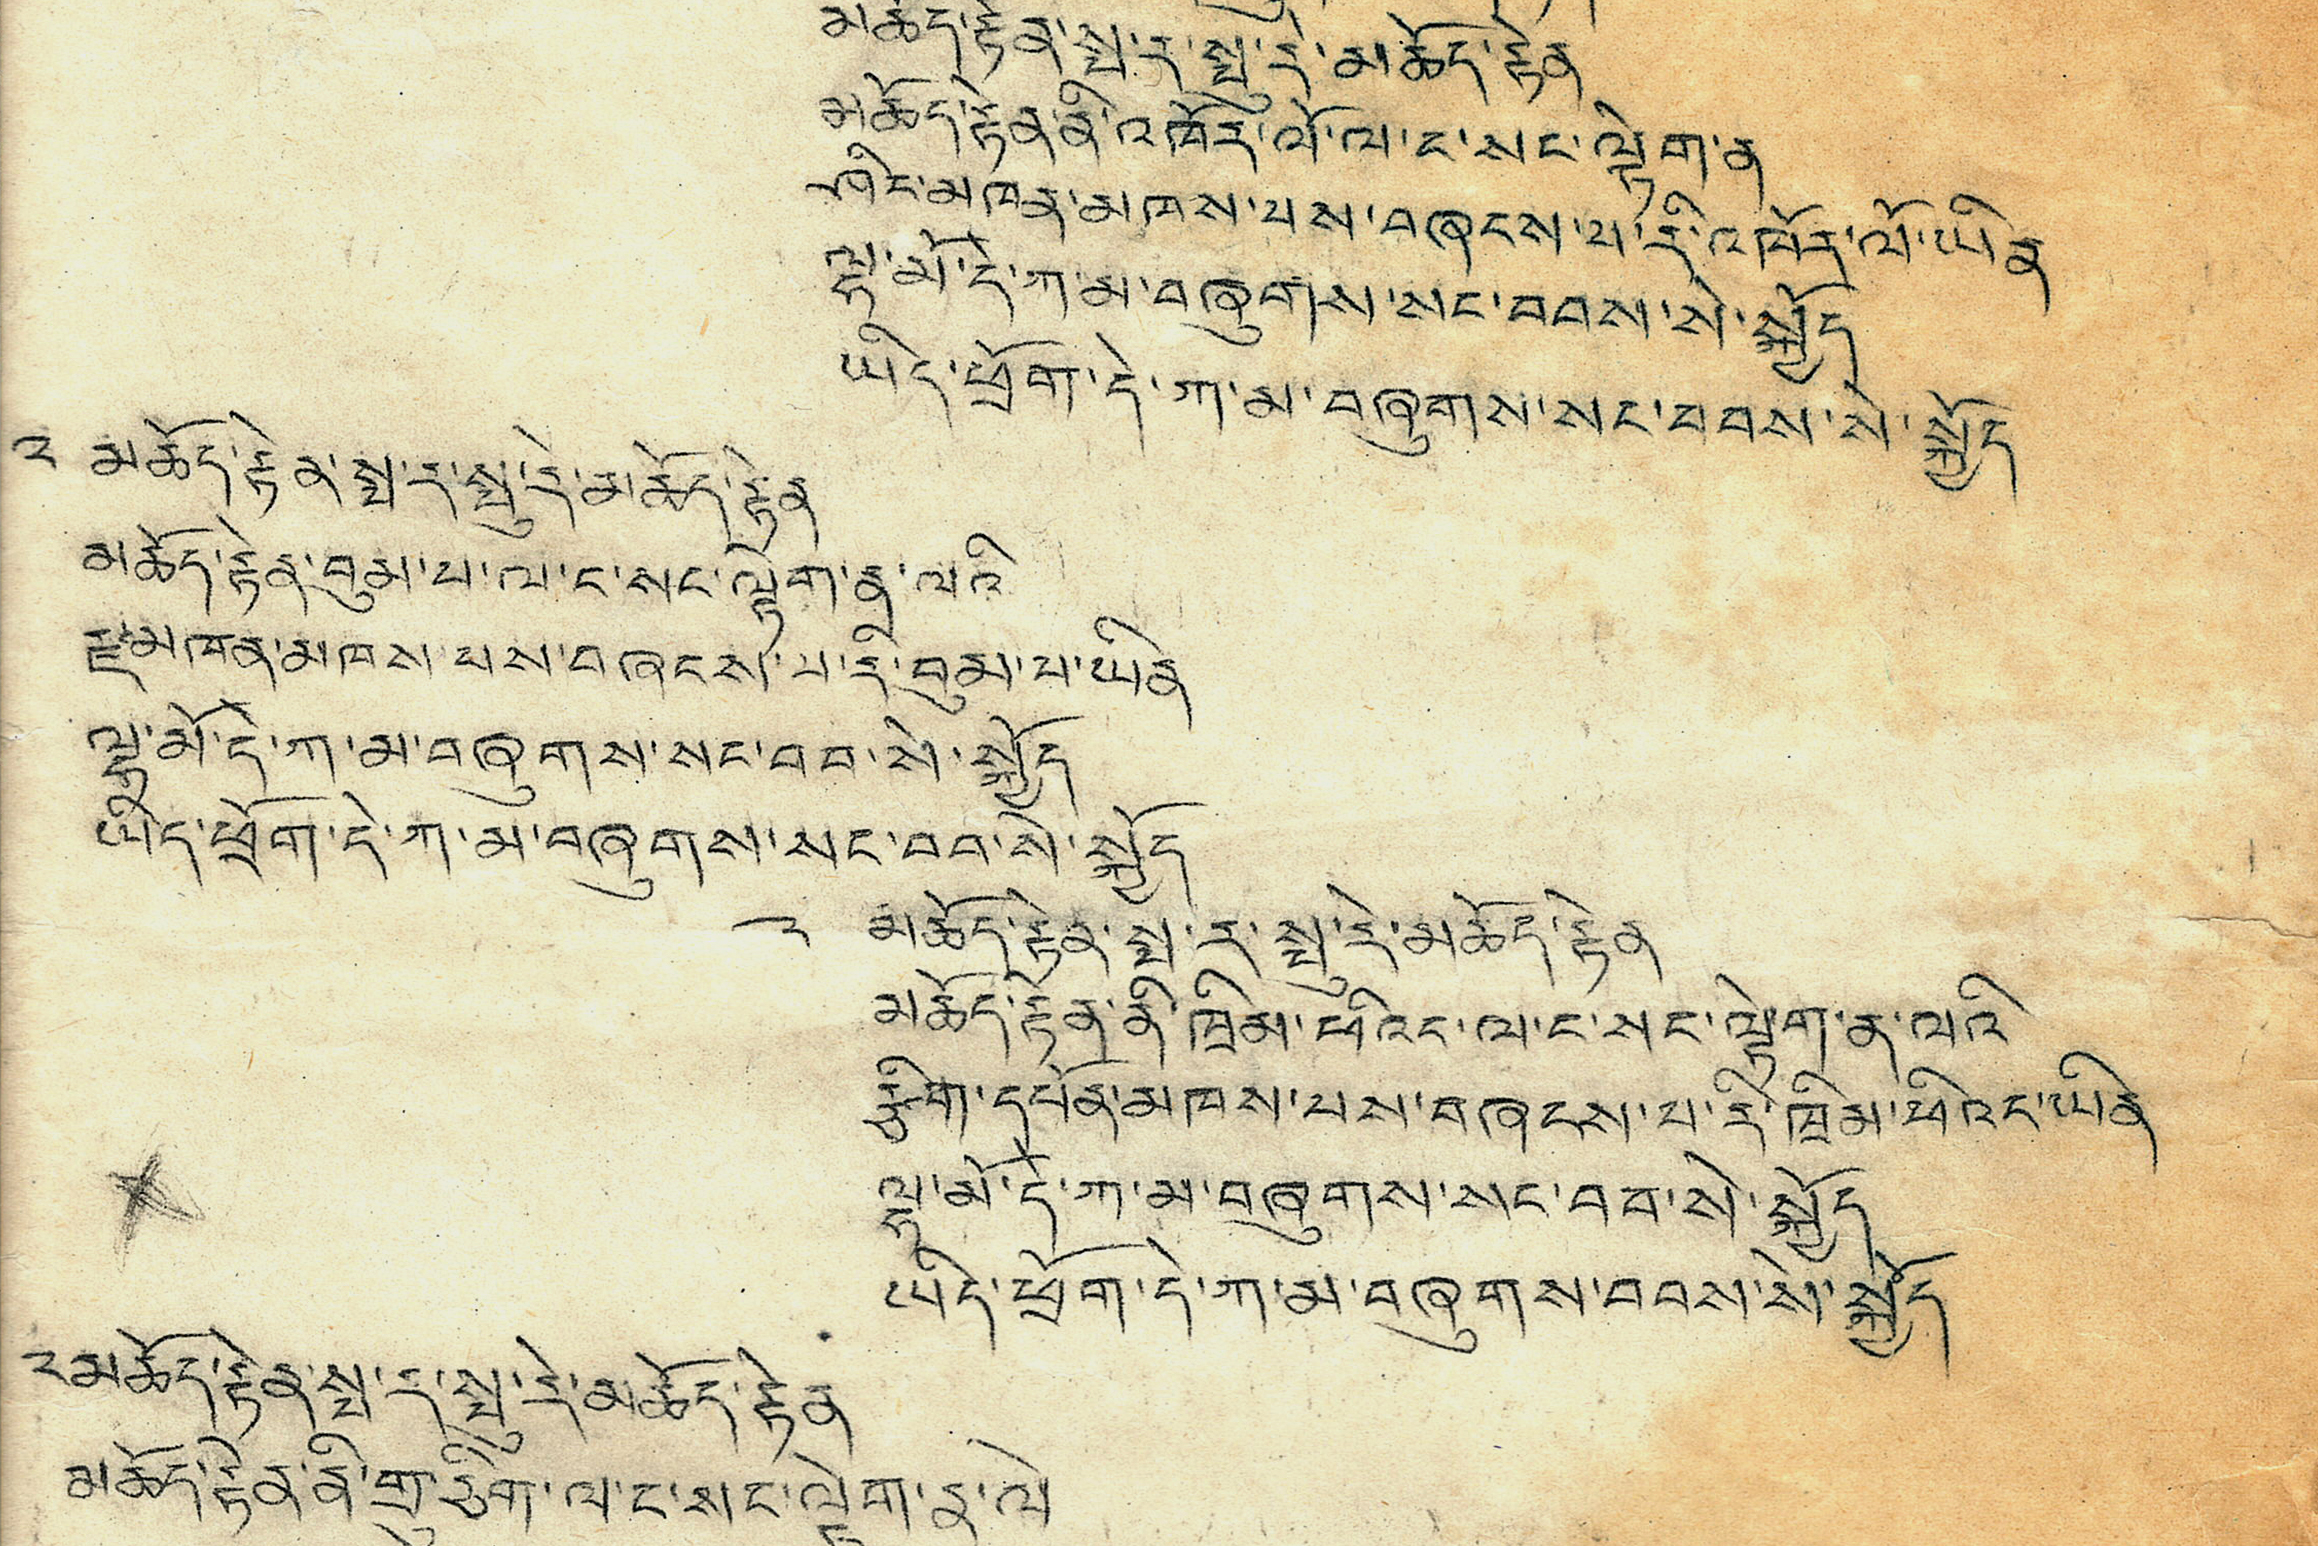 མཆོད་རྟེན་སྤ་ར་སྤུ་རེ་མཆོད་རྟེན
མཆོད་རྟེན་ནི་འཁོར་ལོ་ལ་ང་སང་ལྟེག་ན
ཤིང་མཁན་མཁས་པས་བཞེངས་པ་རི་འཁོར་ལོ་ཡིན
ལྟ་མོ་དེ་ཀ་མ་བཞུགས་སང་བབས་སེ་སྐྱོད
ཡིད་ཕྲོག་དེ་ཀ་མ་བཞུགས་སང་བབས་སེ་སྐྱོད
༢ མཆོད་རྟེན་སྤ་ར་སྤུ་རེ་མཆོད་རྟེན
མཆོད་རྟེན་བུམ་པ་ལ་ང་སང་ལྟེག་ན་ལའི
རྫ་མཁན་མཁས་པས་བཞེངས་པ་རི་བུམ་པ་ཡིན
ལྟ་མོ་དེ་ཀ་མ་བཞུགས་སང་བབ་སེ་སྐྱོད
ཡིད་ཕྲོག་དེ་ཀ་མ་བཞུགས་སང་བབ་སེ་སྐྱོད
༢ མཆོད་རྟེན་སྤ་ར་སྤུ་རེ་མཆོད་རྟེན
མཆོད་རྟེན་ནི་ཁྲིམ་ཕའིང་ལ་ང་སང་ལྟེག་ན་ལའི
རྩིག་དཔོན་མཁས་པས་བཞེངས་པ་རི་ཁྲིམ་ཕའིང་ཡིན
ལྟ་མོ་དེ་ཀ་མ་བཞུགས་སང་བབ་སེ་སྐྱོད
ཡིད་ཕྲོག་དེ་ཀ་མ་བཞུགས་བབས་སེ་སྐྱོད
༢མཆོད་རྟེན་སྤ་ར་སྤུ་རེ་མཆོད་རྟེན
མཆོད་རྟེན་ནི་གྲུ་ཅིག་ལ་ང་སང་ལྟེག་ན་ལེ